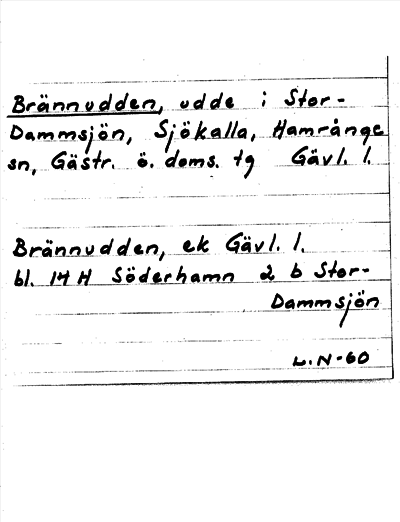 Brännudden, udde i Stor-
Dammsjön, Sjökalla, Hamrånge
sn, Gästr. ö. doms. tg Gävl. l.
Brännudden, ek Gävl. l.
bl. 14 H Söderhamn 2 b Stor-
Dammsjön
L.N-60